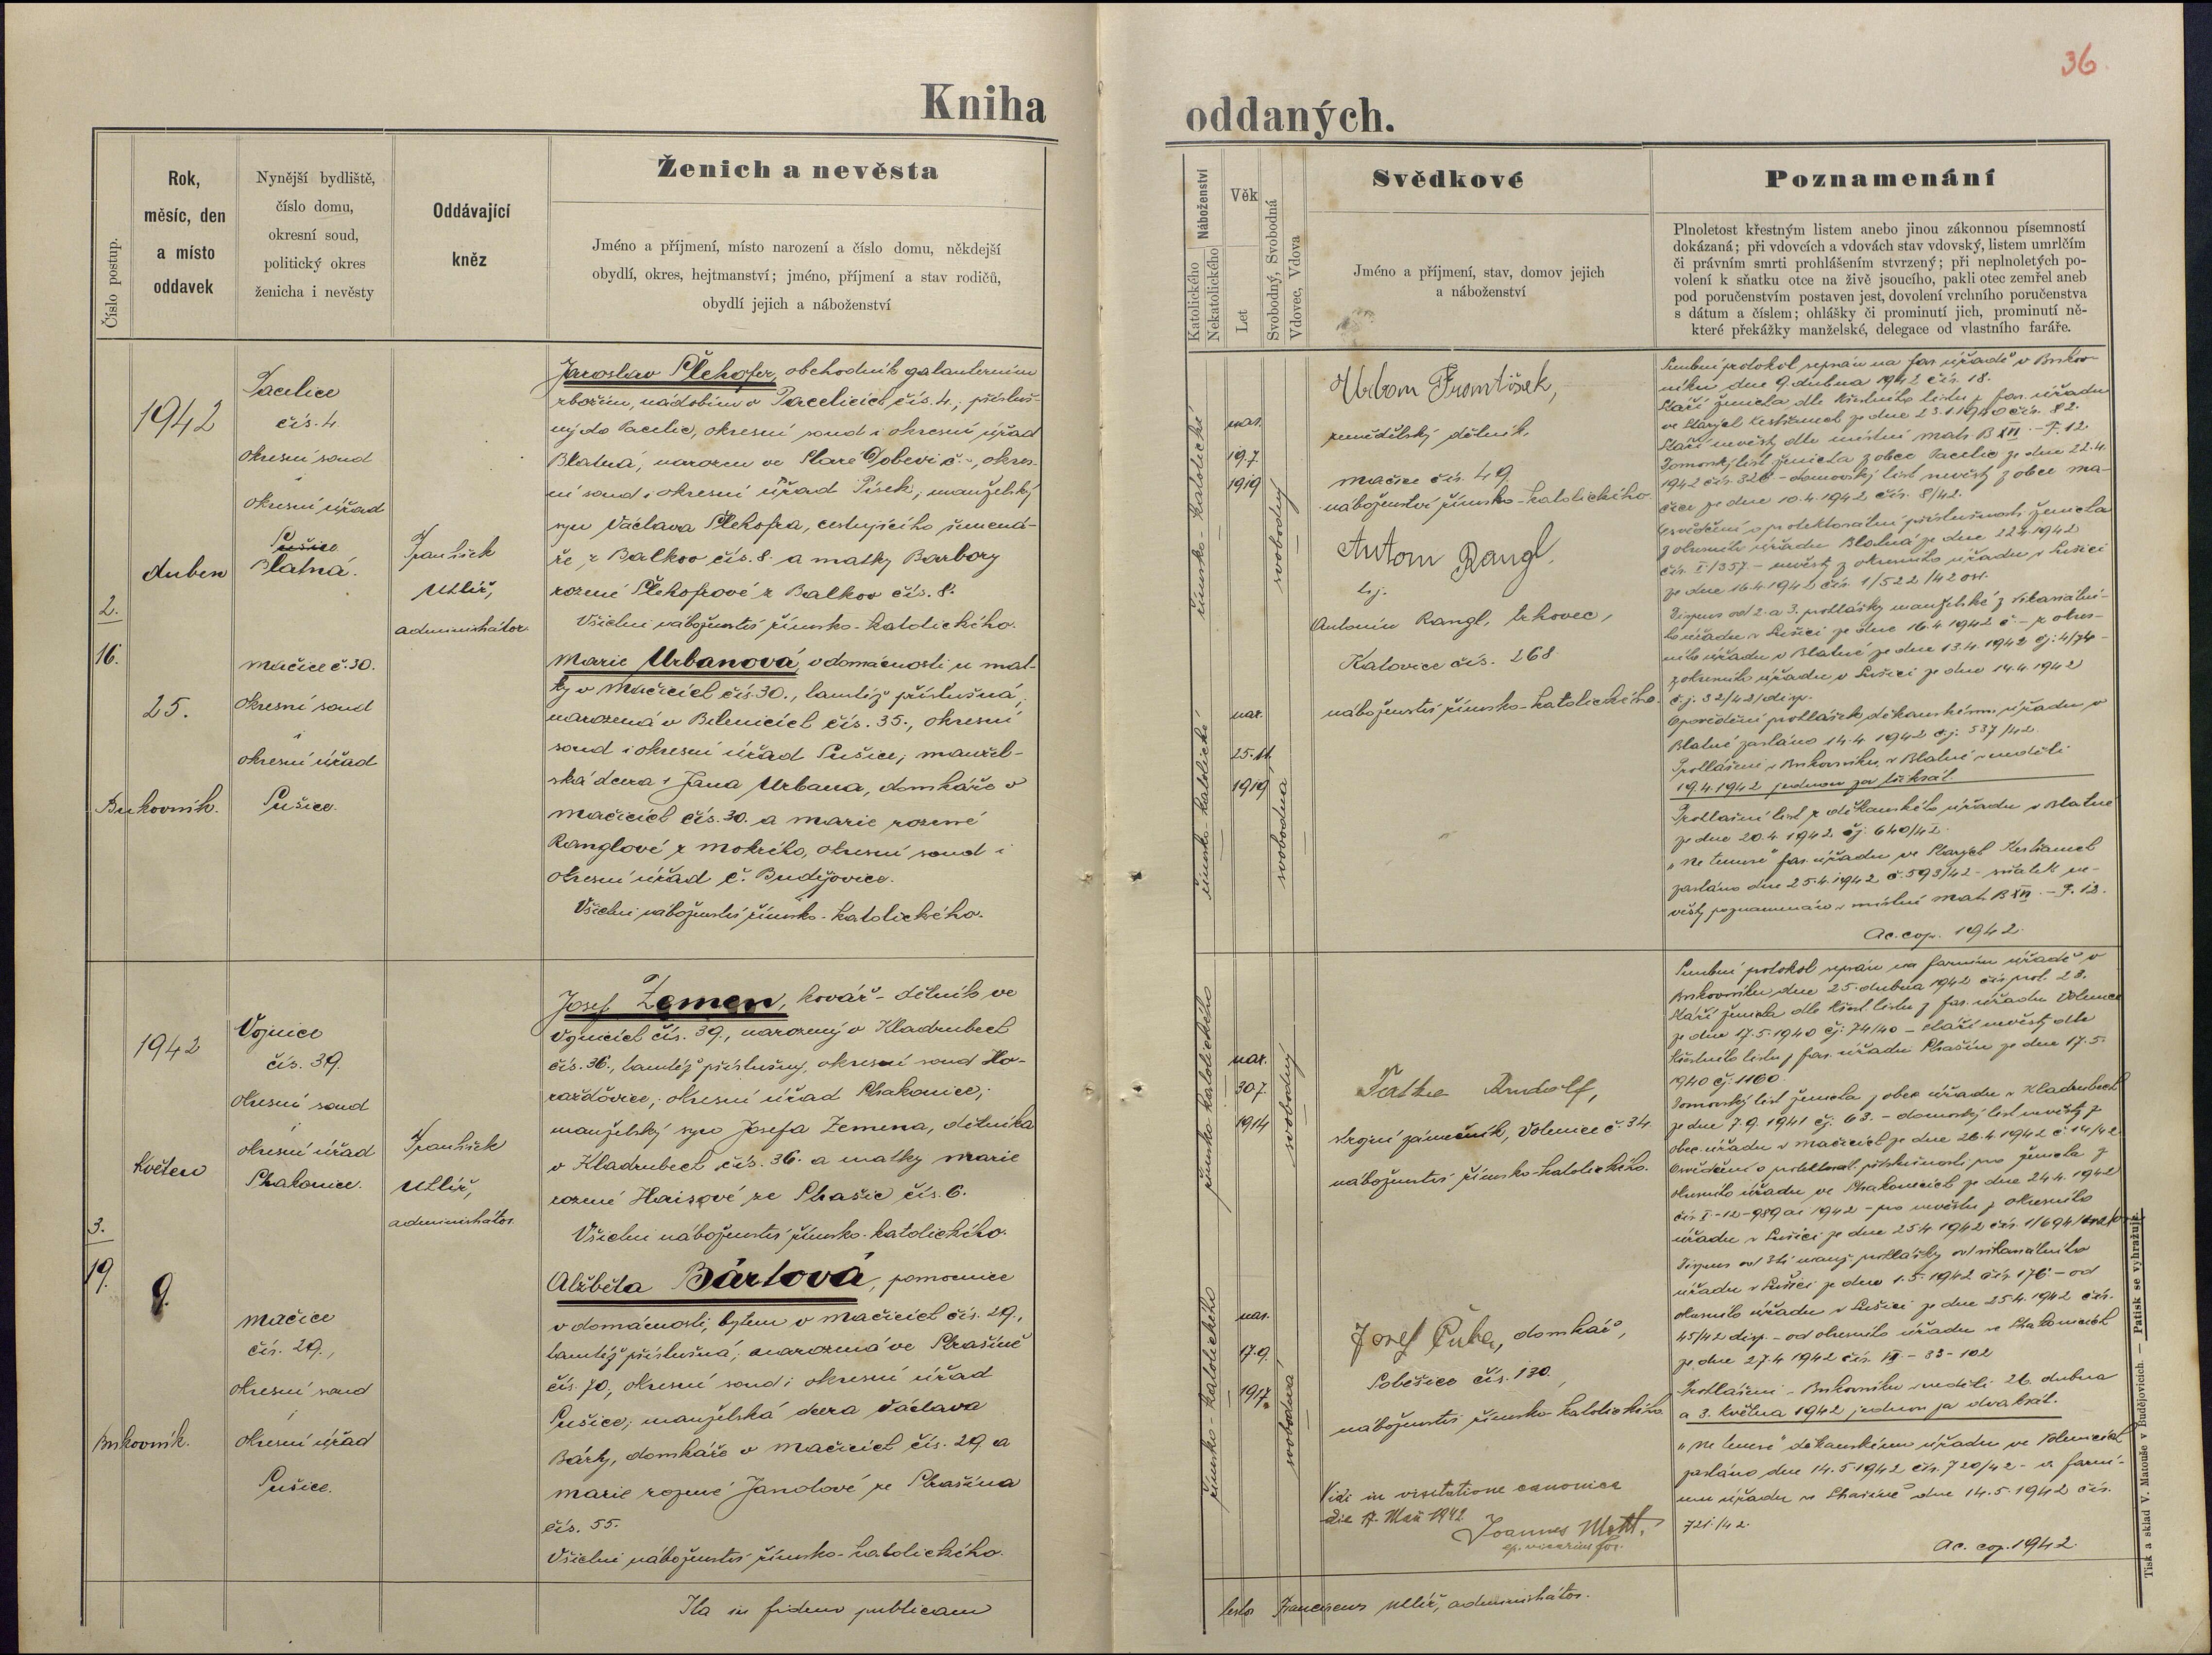 36
Kniha oddaných.
Číslo postup.
Rok,
měsíc, den
a místo
oddavek
Nynější bydliště,
číslo domu,
okresní soud,
politický okres
ženicha i nevěsty
Oddávající
kněz
Ženich a nevěsta
Jméno a příjmení, místo narození a číslo domu, někdejší
obydlí, okres, hejtmanství; jméno, příjmení a stav rodičů,
obydlí jejich a náboženství
Náboženství
Katolického
Nekatolického
Věk
Let
Svobodný, Svobodná
Vdovec, Vdova
Svědkové
Jméno a příjmení, stav, domov jejich
a náboženství
Poznamenání
Plnoletost křestným listem anebo jinou zákonnou písemností
dokázaná; při vdovcích a vdovách stav vdovský, listem umrlčím
či právním smrti prohlášením stvrzený; při neplnoletých po-
volení k sňatku otce na živě jsoucího, pakli otec zemřel aneb
pod poručenstvím postaven jest, dovolení vrchního poručenstva
s dátum a číslem; ohlášky či prominutí jich, prominutí ně-
které překážky manželské, delegace od vlastního faráře.
2.
16.
1942
duben
25.
Bukovník.
Pacelice
čís. 4
okresní soud
i
okresní úřad
Sušice
Blatná.
Mačice č. 30.
okresní soud
i
okresní úřad
Sušice.
František
Utlíř,
administrátor.
Jaroslav Plehofer, obchodník galanterním
zbožím, nádobím v Pacelicích čís. 4., přísluš-
ný do Pacelic, okresní soud i okresní úřad
Blatná, narozen ve Staré Dobevi č. -, okres-
ní soud i okresní úřad Písek; manželský
syn Václava Plehofra, cestujícího
z Balkov čís. 8. a matky Barbory
rozené Plehofrové z Balkov čís. 8.
Všichni náboženství římsko-katolického.
Marie Urbanová, v domácnosti u mat-
ky v Mačicích čís. 30., tamtéž příslušná,
narozená v Bilenicích čís. 35., okresní
soud i okresní úřad Sušice; manžel-
ská dcera Jana Urbana, domkáře v
Mačicích čís. 30. a Marie rozené
Ranglové z Mokrého, okresní soud i
okresní úřad Č. Budějovice.
Všichni náboženství římsko-katolického.
římsko-katolické
nar.
19.7.
1919
svobodný
římsko-katolické
nar.
25.11.
1919
svobodna
Urban František,
zemědělský dělník,
Mačice čís. 49.
náboženství římsko-katolického.
Anton Rangl.
t.j.
Antonín Rangl, trhovec,
Katovice čís. 268.
náboženství římsko-katolického.
Snubní protokol sepsán na far. úřadě v Bukov-
níku dne 9. dubna 1942 čís. 18.
Stáří ženicha dle křestního listu z far. úřadu
ve Starých Kestřanech ze dne 23.1.1940 čís. 82.
Stáří nevěsty dle místní matr. B XII. - F. 12.
Domovský list ženicha z obce Pacelic ze dne 22.4.
1942 čís. 326 - domovský list nevěsty z obce Ma-
čice ze dne 10.4.1942 čís. 8/42.
Osvědčení o protektorátní příslušnosti ženicha
z okresního úřadu Blatná ze dne 22.4.1942
čís. I-1/357 - nevěsty z okresního úřadu v Sušici
ze dne 16.4.1942 čís. 1/522/42 osv.
Dispens od 2. a 3. prohlášky manželské z vikariátní-
ho úřadu v Sušici ze dne 16.4.1942 č. - z okres-
ního úřadu v Blatné ze dne 13.4.1942 čj. 4/74 -
z okresního úřadu v Sušici ze dne 14.4.1942
č.j. 32/42/disp.
Opovědění prohlášek děkanskému úřadu v
Blatné zasláno 14.4.1942 čj. 537/42.
Prohlášeni v Bukovníku, v Blatné v neděli
19.4.1942 jednou za třikrát.
Prohlašní list z děkanského úřadu v Blatné
ze dne 20.4.1942 čj. 640/42.
„Ne temere" far. úřadu ve Starých Kestřanech
zasláno dne 25.4.1942 č. 593/42 - sňatek ne-
věsty poznamenán v místní matr. B XII. - F. 12.
Ac. cop. 1942.
3.
19.
1942
Květen
9.
Bukovník.
Vojnice
čís. 39.
okresní soud
i
okresní úřad
Strakonice.
Mačice
čís. 29.,
okresní soud
i
okresní úřad
Sušice.
František
Utlíř,
administrátor.
Josef Zemen, kovář - dělník ve
Vojnicích čís. 39., narozený v Kladrubech
čís. 36., tamtéž příslušný, okresní soud Ho-
ražďovice, okresní úřad Strakonice;
manželský syn Josefa Zemena, dělníka
v Kladrubech čís. 36. a matky Marie
rozené Haisové ze Strašic čís. 6.
Všichni náboženství římsko-katolického.
Alžběta Bártová, pomocnice
v domácnosti, bytem v Mačicích čís. 29.,
tamtéž příslušná; narozená ve Strašíně
čís. 70., okresní soud i okresní úřad
Sušice; manželská dcera Václava
Bárty, domkáře v Mačicích čís. 29 a
Marie rozené Jandové ze Strašína
čís. 55.
Všichni náboženství římsko-katolického.
římsko katolického
nar.
30.7.
1914
svobodný
římsko-katolického
nar.
17.9.
1917.
svobodná
Rudolf,
strojní zámečník, Volenice č. 34.
náboženství římsko-katolického.
Josef Čuba, domkář,
Soběšice čís. 130.,
náboženství římsko-katolického
Vidi in visitatione canonica
die 17. Maii 1942
Joannes
ep. vicarius for.
Snubní protokol sepsán na farním úřadě v
Bukovníku dne 25. dubna 1942 čís. prot. 23.
Stáří ženicha dle křest. listu z far. úřadu Volenice
ze dne 17.5.1940 čj: 74/40 - stáří nevěsty dle
křestního listu z far. úřadu Strašín ze dne 17.5.
1940 čj. 1160.
Domovský list ženicha z obec. úřadu v Kladrubech
ze dne 7.9.1941 čj. 63. - domovský list nevěsty z
obec. úřadu v Mačicích ze dne 26.4.1942 č. 14/42
Osvědčení o protektorát. příslušnosti pro ženicha z
okresního úřadu ve Strakonicích ze dne 24.4.1942
čís. I-12-989 ai 1942 - pro nevěstu z okresního
úřadu v Sušici ze dne 25.4.1942 čís. 1/694/
Dispens od 3tí manž. prohlášky od vikariátního
úřadu v Sušici ze dne 1.5.1942 čís. 176 - od
okresního úřadu v Sušici ze dne 25.4.1942 čís.
45/42 disp. - od okresního úřadu ve Strakonicích
ze dne 27.4.1942 čís. - 33-102
Prohlášeni v Bukovníku v neděli 26. dubna
a 3. května 1942 jednou za dvakrát.
„Ne temere" děkanskému úřadu ve Volenicích
zasláno dne 14.5.1942 čís. 720/42 - a farní-
mu úřadu ve Strašíně dne 14.5.1942 čís.
721/42.
Ac. cop. 1942.
Ita in fidem publicam
testor Franciscus Utlíř, administrátor.
Tisk a sklad V. Matouše v Budějovicích. — Patisk se vyhražuje.